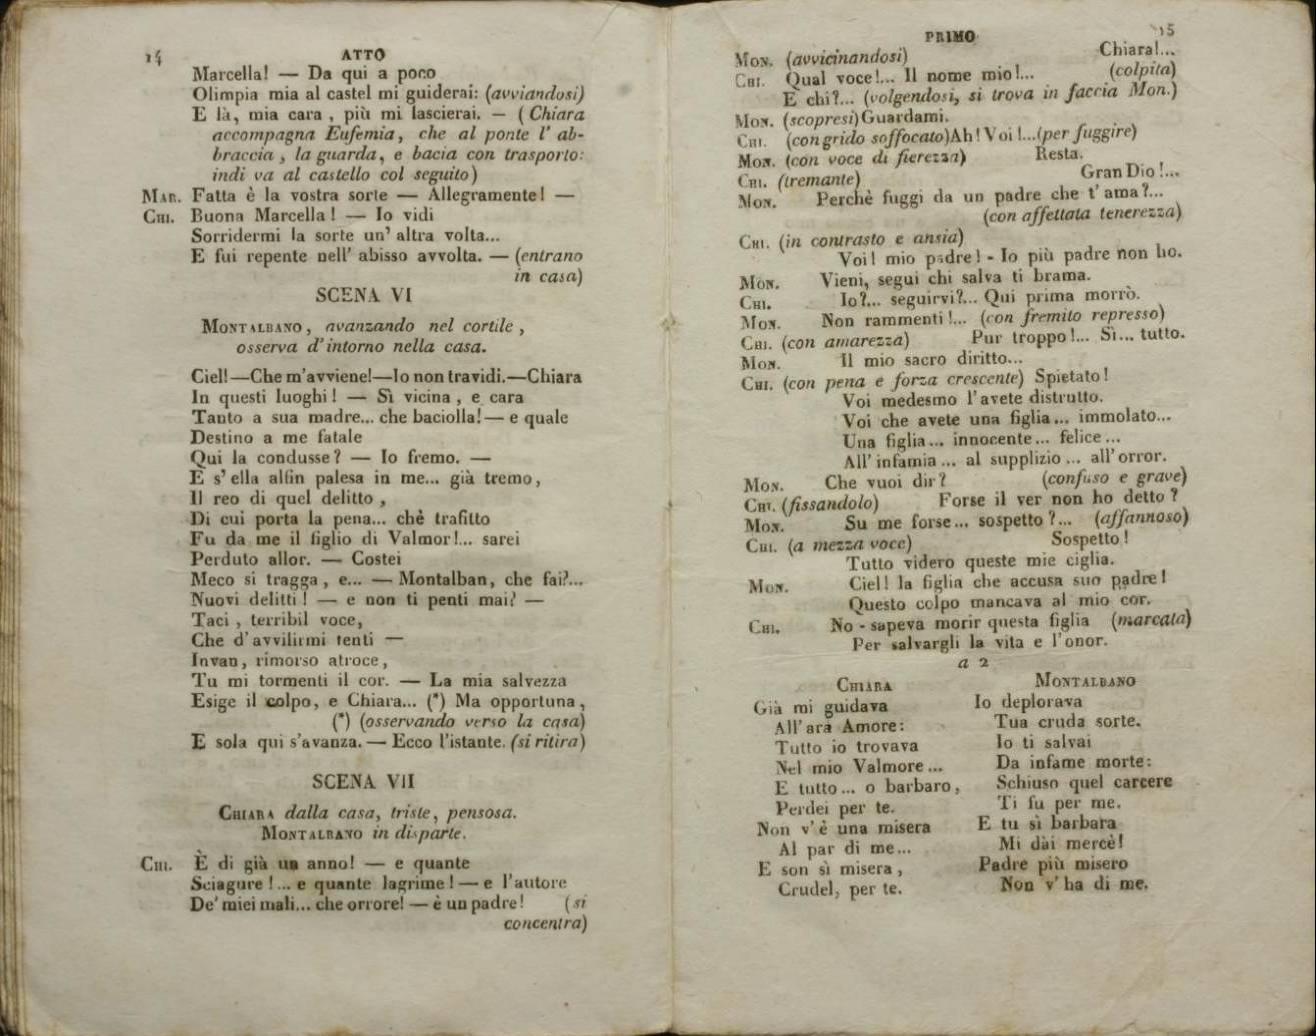 14
ATTO
Marcella! — Da qui a poco
Olimpia mia al castel mi guiderai: (avviandosi)
E là, mia cara , più mi lascierai. — ( Chiara
accompagna Eufemia, che al ponte l' ab-
braccia , la guarda, e bacia con trasporto:
indi va al castello col seguito)
MAR. Fatta è la vostra sorte — Allegramente! —
CHI. Buona Marcella! — Io vidi
Sorridermi la sorte un' altra volta...
E fui repente nell' abisso avvolta. — (entrano
in casa)
SCENA VI
MONTALBANO, avanzando nel cortile ,
osserva d'intorno nella casa.
Ciel!—Che m'avviene!—Io non travidi.—Chiara
In questi luoghi! — Sì vicina , e cara
Tanto a sua madre... che baciolla! — e quale
Destino a me fatale
Qui la condusse? — Io fremo. —
E s' ella alfin palesa in me... già tremo,
Il reo di quel delitto ,
Di cui porta la pena... chè trafitto
Fu da me il figlio di Valmor!... sarei
Perduto allor. — Costei
Meco si tragga , e... — Montalban, che fai?...
Nuovi delitti! — e non ti penti mai? —
Taci , terribil voce,
Che d' avvilirmi tenti —
Invan, rimorso atroce,
Tu mi tormenti il cor. — La mia salvezza
Esige il colpo, e Chiara... (*) Ma opportuna,
(*) (osservando verso la casa)
E sola qui s'avanza. — Ecco l'istante. (si ritira)
SCENA VII
CHIARA dalla casa, triste, pensosa.
MONTALBANO in disparte.
CHI. È di già un anno! — e quante
Sciagure !... e quante lagrime! — e l'autore
De' miei mali... che orrore! — è un padre! (si
concentra)
PRIMO
15
MON. (avvicinandosi) Chiara!...
CHI. Qual voce!... Il nome mio!... (colpita)
E chi?... (volgendosi, si trova in faccia Mon.)
MON. (scopresi) Guardami.
CHI. (con grido soffocato) Ah! Voi!...(per fuggire)
MON. (con voce di fierezza) Resta.
CHI. (tremante) Gran Dio!...
MON. Perchè fuggi da un padre che t' ama?...
(con affettata tenerezza)
CHI. (in contrasto e ansia)
Voi! mio padre! - Io più padre non ho.
MON. Vieni, segui chi salva ti brama.
CHI. Io?... seguirvi?... Qui prima morrò.
MON. Non rammenti!... (con fremito represso)
CHI. (con amarezza) Pur troppo!... Sì... tutto.
MON. Il mio sacro diritto...
CHI. (con pena e forza crescente) Spietato!
Voi medesmo l'avete distrutto.
Voi che avete una figlia... immolato...
Una figlia... innocente... felice...
All' infamia... al supplizio... all' orror.
MON. Che vuoi dir? (confuso e grave)
CHI. (fissandolo) Forse il ver non ho detto?
MON. Su me forse... sospetto?... (affannoso)
CHI. (a mezza voce) Sospetto!
Tutto videro queste mie ciglia.
MON. Ciel! la figlia che accusa suo padre!
Questo colpo mancava al mio cor.
CHI. No - sapeva morir questa figlia (marcata)
Per salvargli la vita e l'onor.
a 2
CHIARA
Già mi guidava
All' ara Amore:
Tutto io trovava
Nel mio Valmore...
E tutto... o barbaro,
Perdei per te.
Non v' è una misera
Al par di me...
E son sì misera ,
Crudel, per te.
MONTALBANO
Io deplorava
Tua cruda sorte.
Io ti salvai
Da infame morte:
Schiuso quel carcere
Ti fu per me.
E tu sì barbara
Mi dài mercè!
Padre più misero
Non v' ha di me.